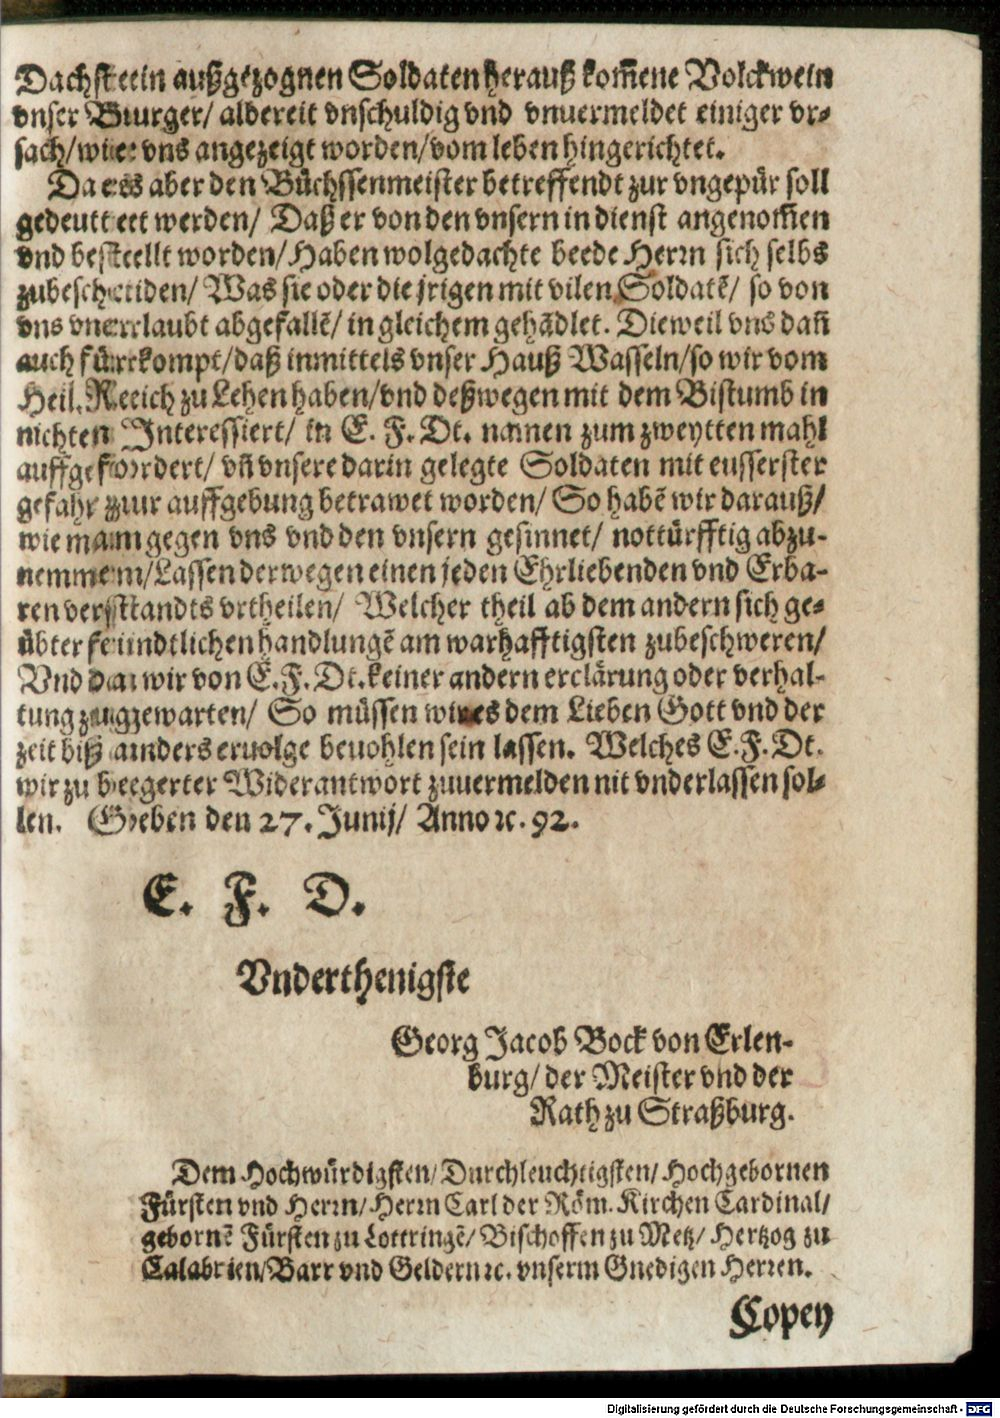 Dachstein außgezognen Soldaten herauß kom̃ene Volckwein
vnser Burger/ aldereit vnschuldig vnd vnuermeldet einiger vr⸗
sach/ wie vns angezeigt worden/ vom leben hingerichtet.
Da es aber den Büchssenmeister betreffendt zur vngepür soll
gedeuttet werden/ Daß er von den vnsern in dienst angenom̃en
vnd bestellt worden/ Haben wolgedachte beede Herrn sich selbs
zubescheiden/ Was sie oder die jrigen mit vilen Soldatẽ/ so von
vns vnerlaubt abgefallẽ/ in gleichem gehãdlet. Dieweil vns dañ
auch fürkompt/ daß inmittels vnser Hauß Wasseln/ so wir vom
Heil. Reich zu Lehen haben/ vnd deßwegen mit dem Bistumb in
nichten Interessiert/ in E. F. Dt. namen zum zweytten mahl
auffgefordert/ vñ vnsere darin gelegte Soldaten mit eusserster
gefahr zur auffgebung betrawet worden/ So habẽ wir darauß/
wie man gegen vns vnd den vnsern gesinnet/ nottürfftig abzu-
nemmen/ Lassen derwegen einen jeden Ehrliebenden vnd Erba-
ren verstandts vrtheilen/ Welcher theil ab dem andern sich ge⸗
übter feindtlichen handlungẽ am warhafftigsten zubeschweren/
Vnd da wir von E. F. Dt. keiner andern erclärung oder verhal-
tung zugewarten/ So müssen wir es dem Lieben Gott vnd der
zeit biß anders eruolge beuohlen sein lassen. Welches E. F. Dt.
wir zu begerter Widerantwort zuuermelden nit vnderlassen sol⸗
len. Geben den 27. Junij/ Anno ꝛc. 92.
E. F. D.
Vnderthenigste
Georg Jacob Bock von Erlen-
burg/ der Meister vnd der
Rath zu Straßburg.
Dem Hochwürdigsten/ Durchleuchtigsten/ Hochgebornen
Fürsten vnd Herrn/ Herrn Carl der Röm. Kirchen Cardinal/
gebornẽ Fürsten zu Lottringẽ/ Bischoffen zu Metz/ Hertzog zu
Calabrien/ Barr vnd Geldern ꝛc. vnserm Gnedigen Herren.
Copey
Digitalisierung gefördert durch die Deutsche Forschungsgemeinschaft - DFG